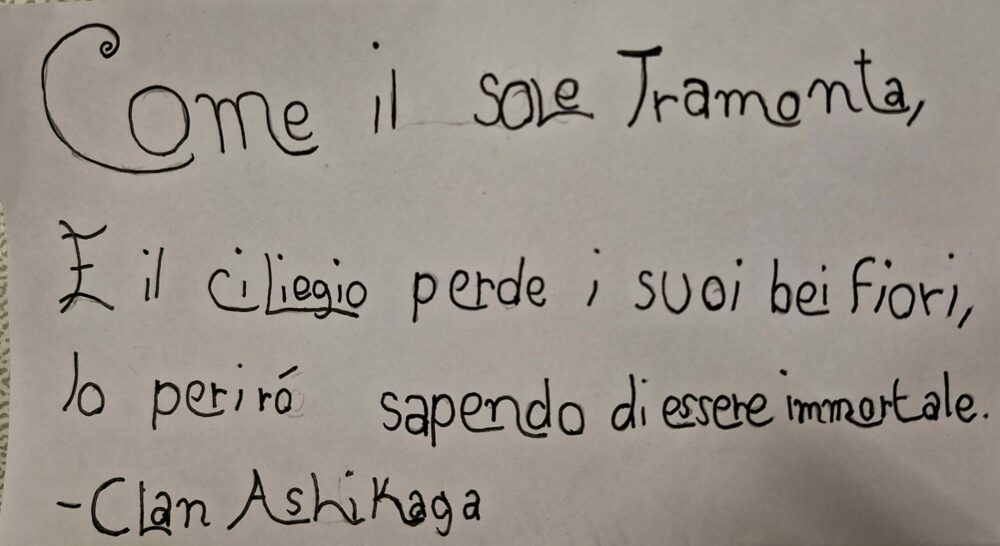 Come il sole Tramonta,
E il ciliegio perde i suoi bei fiori,
Io periró sapendo di essere immortale.
-Clan Ashikaga